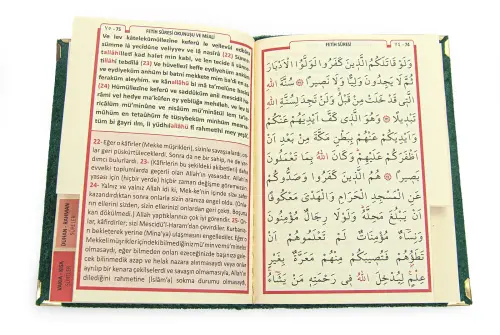 ۷۴ - 75 FETİH SÛRESİ OKUNUŞU VE MEÂLİ
Ve lev kâtelekümüllezîne keferû le vellevül edbâra
sümme lâ yecidûne veliyyev ve lâ nasîrâ (22) Sünne
tallâhilletî kad halet min kabl, ve len tecide li sünne
tillâhi tebdîlâ (23) Ve hüvellezî keffe eydiyehüm anküm
ve eydiyeküm anhüm bi batni mekkete mim ba'di en
feraküm aleyhim, ve kânallâhü bi mâ ta'melûne
(24) Hümüllezîne keferû ve saddûküm anil mescidil ha
râmi vel hedye ma'kûfen ey yeblüğa mehılleh, ve lev lâ
ricâlüm mü'minûne ve nisâüm mü'minâtül lem ta'le
mûhüm en tetaûhüm fe tusîbeküm minhüm mearra
tüm bi ğayri ılm, li yüdhılallâhü fî rahmetihî mey
22- Eğer o kâfirler (Mekke müşrikleri), sizinle savaşsalardı,
lar geri püskürtüleceklerdi. Sonra da ne bir sahip, ne de
dımcı bulurlardı. 23- (Kâfirlerin bu şekildeki akıbetleri) daha
evvelki topluluklarda geçerli olan Allah'ın
yasası için (hiçbir yerde) hiçbir zaman değişme göremezsin.
24- Yalnız ve yalnız Allah idi ki, Mek-ke'nin içinde size zafer
kazandırdıktan sonra onların sizin aranıza engel oldu.
ın ellerini sizden, sizin ellerinizi onlardan geri çekti. Başınız
kan dökülmedi.) Allah yaptıklarınıza çok iyi görendi. 25- O
kâfirdirler; sizi Mescidü'l-Haram'dan çevirdiler. Kurban
bekleterek yerine (Mina'ya) ulaşmasını engellediler. Eğer
Mekkeli müşrikler içinde bilmediğiniz mü'min ve mü'min
olmasaydı, eğer bilmeden onları ezeceğinizle başınıza
cek bilinmedik azap ve helak nazara alınmasaydı veya
ayrılıp bir kenara çekilselerdi ve savaşın olmamasıyla, Allah'ın
dilediğini rahmetine (İslâm'a) sokma durumu olmasaydı,
DUHAN - RAHMAN
SÛRELERİ
VAKIA - KISA
SÛRELER
FETİH SÛRESİ ۷۴ - 74
وَلَوْ قَاتَلَكُمُ الَّذ۪ينَ كَفَرُوا لَوَلَّوُا الْاَدْبَارَ
ثُمَّ لَا يَجِدُونَ وَلِيًّا وَلَا نَص۪يرًا ۞ سُنَّةَ اللّٰهِ
الَّت۪ي قَدْ خَلَتْ مِنْ قَبْلُ وَلَنْ تَجِدَ لِسُنَّةِ اللّٰهِ
تَبْد۪يلًا ۞ وَهُوَ الَّذ۪ي كَفَّ اَيْدِيَهُمْ عَنْكُمْ
وَاَيْدِيَكُمْ عَنْهُمْ بِبَطْنِ مَكَّةَ مِنْ بَعْدِ اَنْ
اَظْفَرَكُمْ عَلَيْهِمْ وَكَانَ اللّٰهُ بِمَا تَعْمَلُونَ
بَص۪يرًا ۞ هُمُ الَّذ۪ينَ كَفَرُوا وَصَدُّوكُمْ
عَنِ الْمَسْجِدِ الْحَرَامِ وَالْهَدْيَ مَعْكُوفًا
اَنْ يَبْلُغَ مَحِلَّهُ وَلَوْلَا رِجَالٌ مُؤْمِنُونَ
وَنِسَٓاءٌ مُؤْمِنَاتٌ لَمْ تَعْلَمُوهُمْ اَنْ
تَطَؤُ۫هُمْ فَتُص۪يبَكُمْ مِنْهُمْ مَعَرَّةٌ بِغَيْرِ
عِلْمٍ لِيُدْخِلَ اللّٰهُ ف۪ي رَحْمَتِه۪ مَنْ يَشَٓاءُ